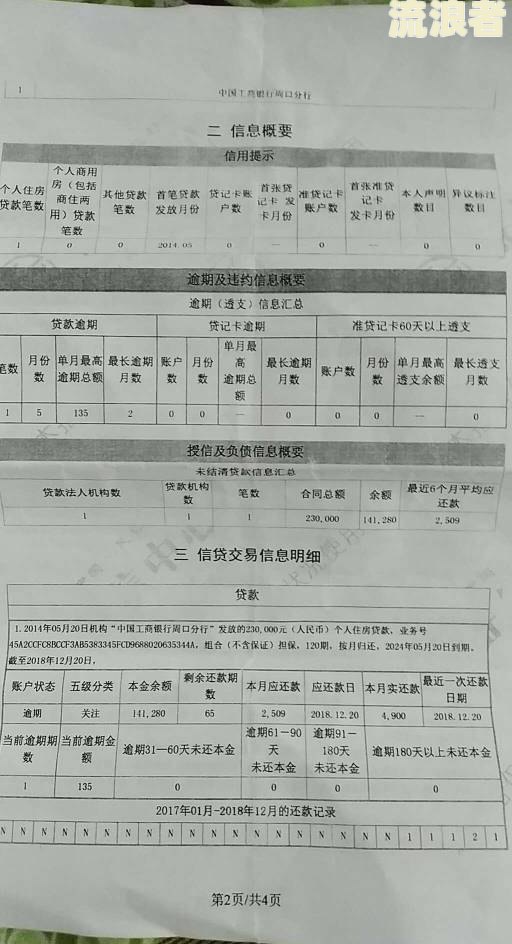 流浪者
1 中国工商银行周口分行
二 信息概要
信用提示
个人住房贷款笔数 个人商用房（包括商住两用）贷款笔数 其他贷款笔数 首笔贷款发放月份 贷记卡账户数 首张贷记卡 发卡月份 准贷记卡账户数 首张准贷记卡 发卡月份 本人声明数目 异议标注数目
1 0 0 2014.05 0 — 0 — 0 0
逾期及违约信息概要
逾期（透支）信息汇总
贷款逾期 贷记卡逾期 准贷记卡60天以上透支
笔数 月份数 单月最高逾期总额 最长逾期月数 账户数 月份数 单月最高逾期总额 最长逾期月数 账户数 月份数 单月最高透支余额 最长透支月数
1 5 135 2 0 0 — 0 0 0 — 0
授信及负债信息概要
未结清贷款信息汇总
贷款法人机构数 贷款机构数 笔数 合同总额 余额 最近6个月平均应还款
1 1 1 230,000 141,280 2,509
三 信贷交易信息明细
贷款
1.2014年05月20日机构“中国工商银行周口分行”发放的230,000元（人民币）个人住房贷款，业务号
45A2CCFC8BCCF3AB5383345FCD9688020635344A，组合（不含保证）担保，120期，按月归还，2024年05月20日到期。
截至2018年12月20日，
账户状态 五级分类 本金余额 剩余还款期数 本月应还款 应还款日 本月实还款 最近一次还款日期
逾期 关注 141,280 65 2,509 2018.12.20 4,900 2018.12.20
当前逾期期数 当前逾期金额 逾期31—60天未还本金 逾期61－90天未还本金 逾期91－180天未还本金 逾期180天以上未还本金
1 135 0 0 0 0
2017年01月-2018年12月的还款记录
N N N N N N N N N N N N N N N N N N N 1 1 1 2 1
第2页/共4页